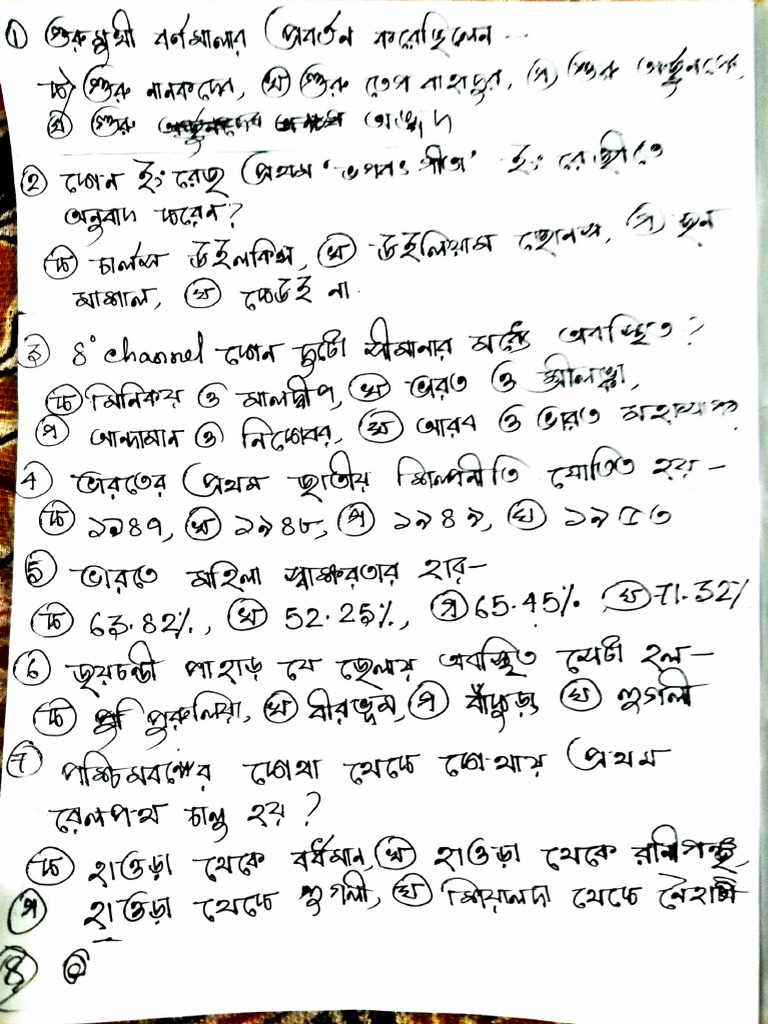 ① গুরুমুখী বর্নমালার প্রবর্তন করেছিলেন —
ক) গুরু নানকদেব, খ) গুরু তেগ বাহাদুর, গ) গুরু অর্জুনদেব,
ঘ) গুরু অঙ্গদ
② কোন ইংরেজ প্রথম 'ভগবৎ গীতা' ইংরেজীতে
অনুবাদ করেন?
ক) চার্লস উইলকিন্স, খ) উইলিয়াম জোনস, গ) জন
মার্শাল, ঘ) কেউই না.
③ 8° channel কোন দুটো সীমানার মধ্যে অবস্থিত?
ক) মিনিকয় ও মালদ্বীপ, খ) ভারত ও শ্রীলঙ্কা,
গ) আন্দামান ও নিকোবর, ঘ) আরব ও ভারত মহাসাগর
④ ভারতের প্রথম জাতীয় শিল্পনীতি ঘোষিত হয় —
ক) ১৯৪৭, খ) ১৯৪৮, গ) ১৯৪৯, ঘ) ১৯৫৩
⑤ ভারতে মহিলা স্বাক্ষরতার হার —
ক) 63.82%, খ) 52.25%, গ) 65.45%. ঘ) 71.32%
⑥ জয়চন্ডী পাহাড় যে জেলায় অবস্থিত সেটা হল —
ক) পুরুলিয়া, খ) বীরভূম, গ) বাঁকুড়া, ঘ) হুগলী
⑦ পশ্চিমবঙ্গের কোথা থেকে কোথায় প্রথম
রেলপথ চালু হয়?
ক) হাওড়া থেকে বর্ধমান, খ) হাওড়া থেকে রানিগঞ্জ,
গ) হাওড়া থেকে হুগলী, ঘ) শিয়ালদা থেকে নৈহাটি
⑧